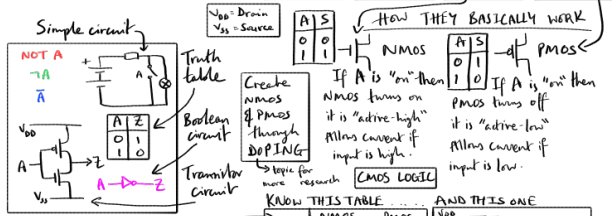 Simple circuit
VDD = Drain
VSS = Source
HOW THEY BASICALLY WORK
NOT A
¬A
A̅
+
A
Truth
table
A Z
0 1
1 0
Boolean
circuit
A Z
VDD
A Z
VSS
Transistor
circuit
Create
NMOS
& PMOS
through
DOPING
topic for
more research
A S
0 0
1 1
NMOS
If A is "on" then
NMOS turns on
it is "active-high"
Allows current if
input is high.
A S
0 1
1 0
PMOS
If A is "on" then
PMOS turns off
it is "active-low"
Allows current if
input is low.
CMOS LOGIC
KNOW THIS TABLE ...... AND THIS ONE
NMOS
VDD